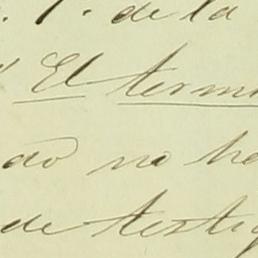 1. de la
El termi
do no ha
de testig